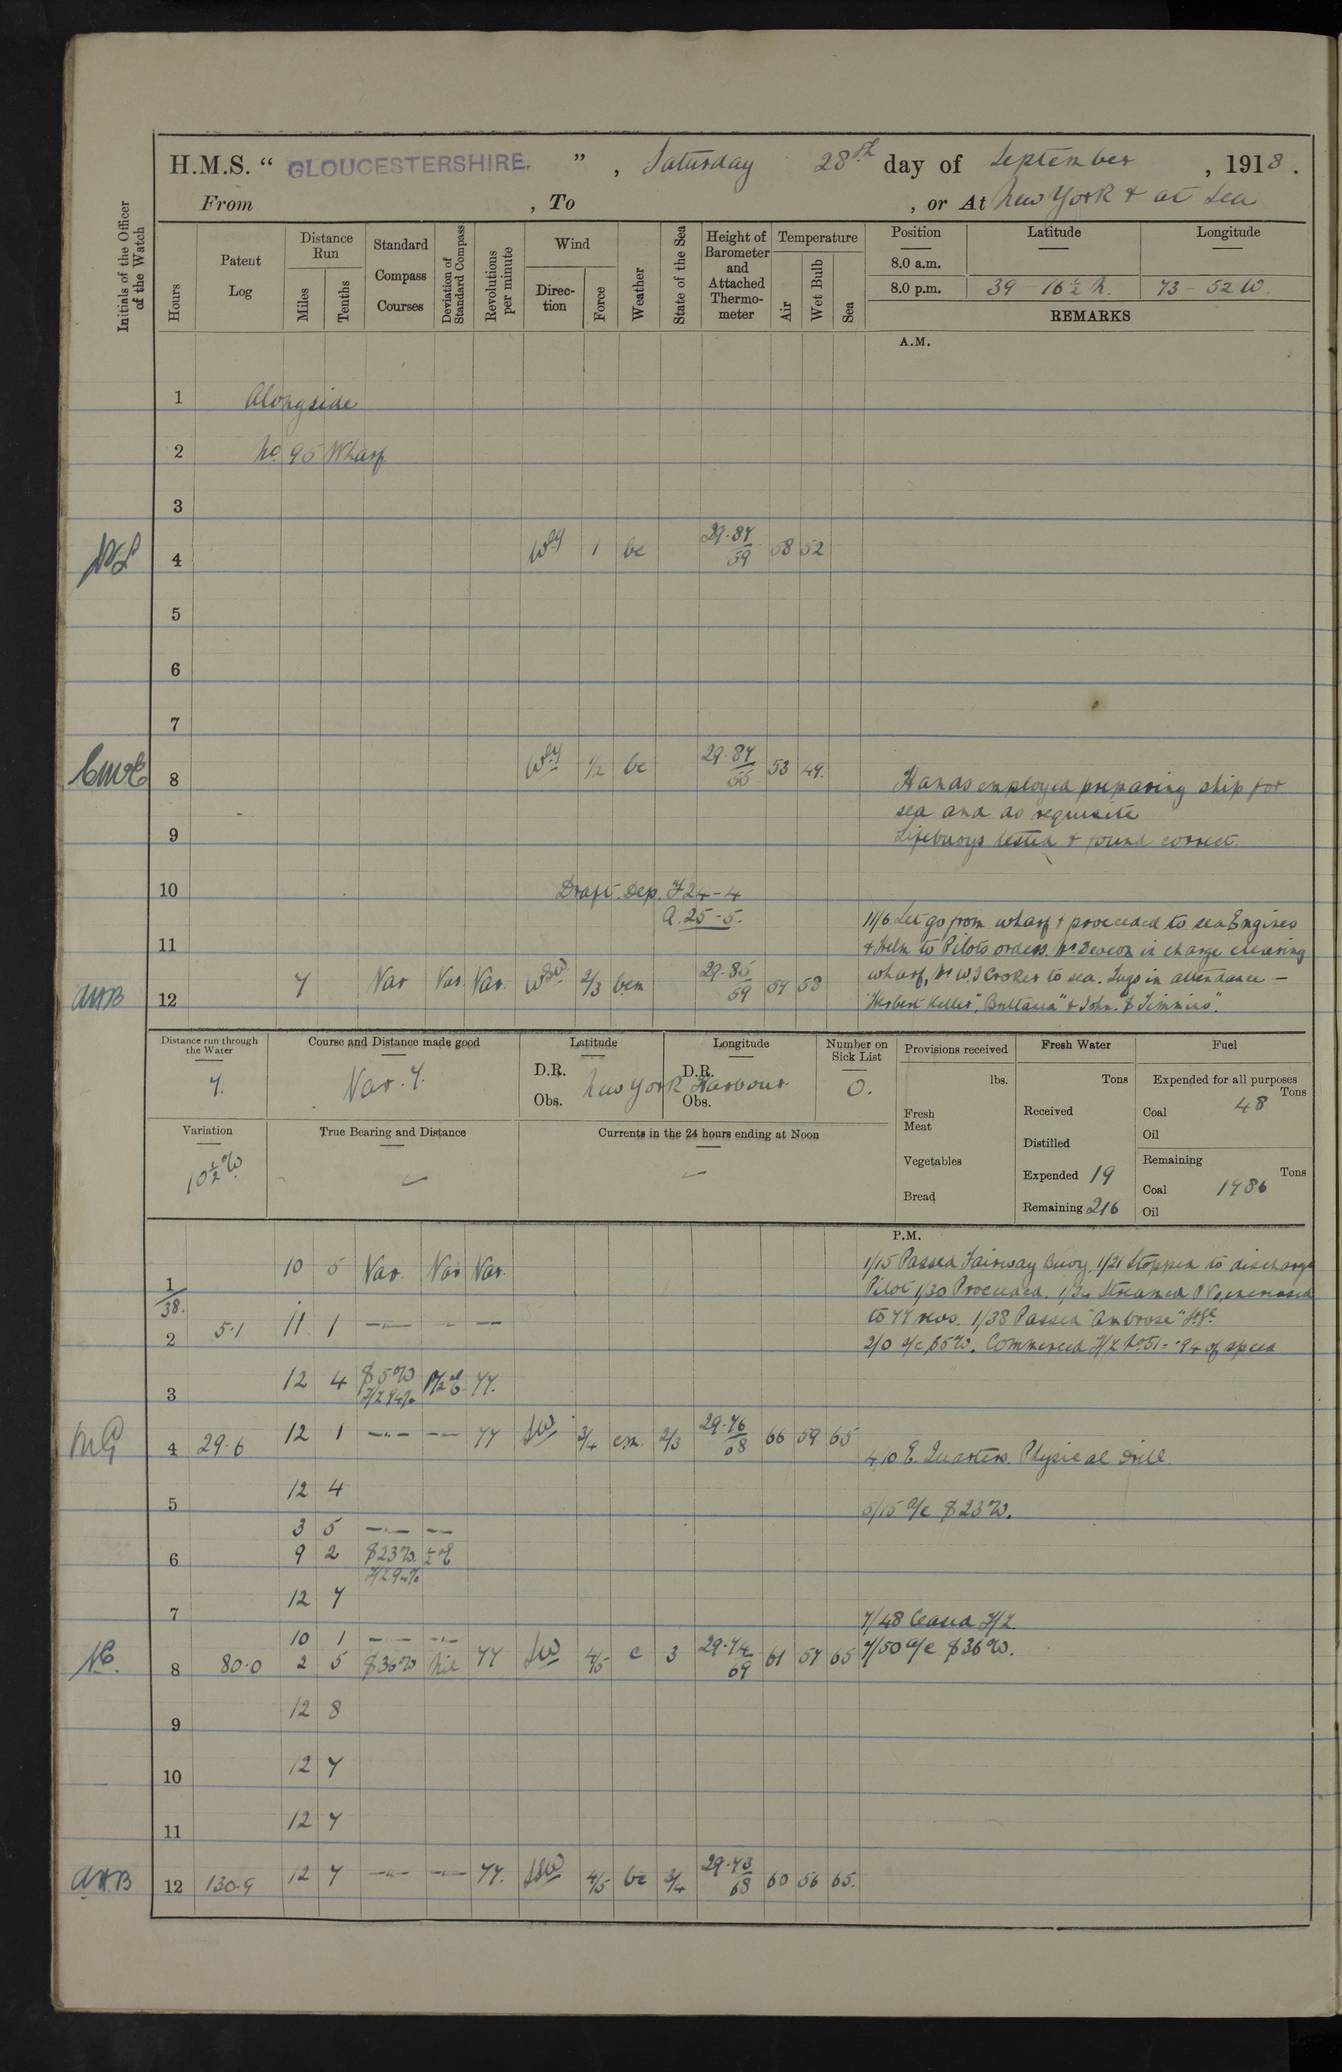 H.M.S. “ GLOUCESTERSHIRE. ” , Saturday 28th day of September , 1918 .
From , To , or At New York & at Sea
Initials of the Officer of the Watch
Hours
Patent Log
Distance Run
Miles
Tenths
Standard Compass Courses
Deviation of Standard Compass
Revolutions per minute
Wind
Direction
Force
Weather
State of the Sea
Height of Barometer and Attached Thermometer
Temperature
Air
Wet Bulb
Sea
Position
Latitude
Longitude
8.0 a.m.
8.0 p.m. 39 - 16½ N. 73 - 52 W.
REMARKS
A.M.
1 Alongside
2 No. 95 Wharf
3
4 Wly 1 bc 29.87 59 58 52
5
6
7
8 Wly 1/2 bc 29.87 55 53 49.
Hands employed preparing ship for
sea and as requisite
9
Lifebuoys tested & found correct.
10 Draft. Dep. F 24 - 4
A. 25 - 5.
11/6 Let go from wharf & proceeded to sea Engines
11
& Helm to Pilots orders. Mr Deacon in charge clearing
wharf, Mr W. J Crocker to sea. Tugs in attendance —
12 7 Var Var. Var. WSW 2/3 bcm 29.85 59 57 53
AHB
"Herbert Keller", "Brittania" & "John. Timmins".
Distance run through the Water
7.
Course and Distance made good
Var. 7.
Latitude
D.R.
Obs.
Longitude
D.R.
Obs.
New York Harbour
Number on Sick List
0.
Provisions received
lbs.
Fresh Meat
Vegetables
Bread
Fresh Water
Tons
Received
Distilled
Expended 19
Remaining 216
Fuel
Expended for all purposes
Tons
Coal 48
Oil
Remaining
Tons
Coal 1786
Oil
Variation
10½ W.
True Bearing and Distance
Currents in the 24 hours ending at Noon
P.M.
1 10 5 Var. Var Var.
1/15 Passed Fairway Buoy. 1/21 Stopped to discharge
38.
Pilot 1/30 Proceeded. Streamed P Vs, increased
to 77 revs. 1/38 Passed "Ambrose"
2 5.1 11 1 —"— — —
2/0 a/c S5W. Commenced Z/Z No 51 = .94 of speed
3 12 4 S5W 77.
Z/Z 94%
4 29.6 12 1 —"— —— 77 SW 3/4 cm. 2/3 29.76 68 66 59 65
4.10 E. Quarters. Physical Drill.
5 12 4
5/15 a/c S23W.
3 5 —"— ——
6 9 2 S23W. ½E
Z/Z 94%
7 12 7
7/48 Ceased Z/Z.
10 1 —"— —"—
8 80.0 2 5 S36W Nil 77 SW 4/5 c 3 29.74 69 61 57 65
7/50 a/c S36W.
9 12 8
10 12 7
11 12 7
12 130.9 12 7 —"— —"— 77. SSW 4/5 bc 3/4 29.73 68 60 56 65.
AHB